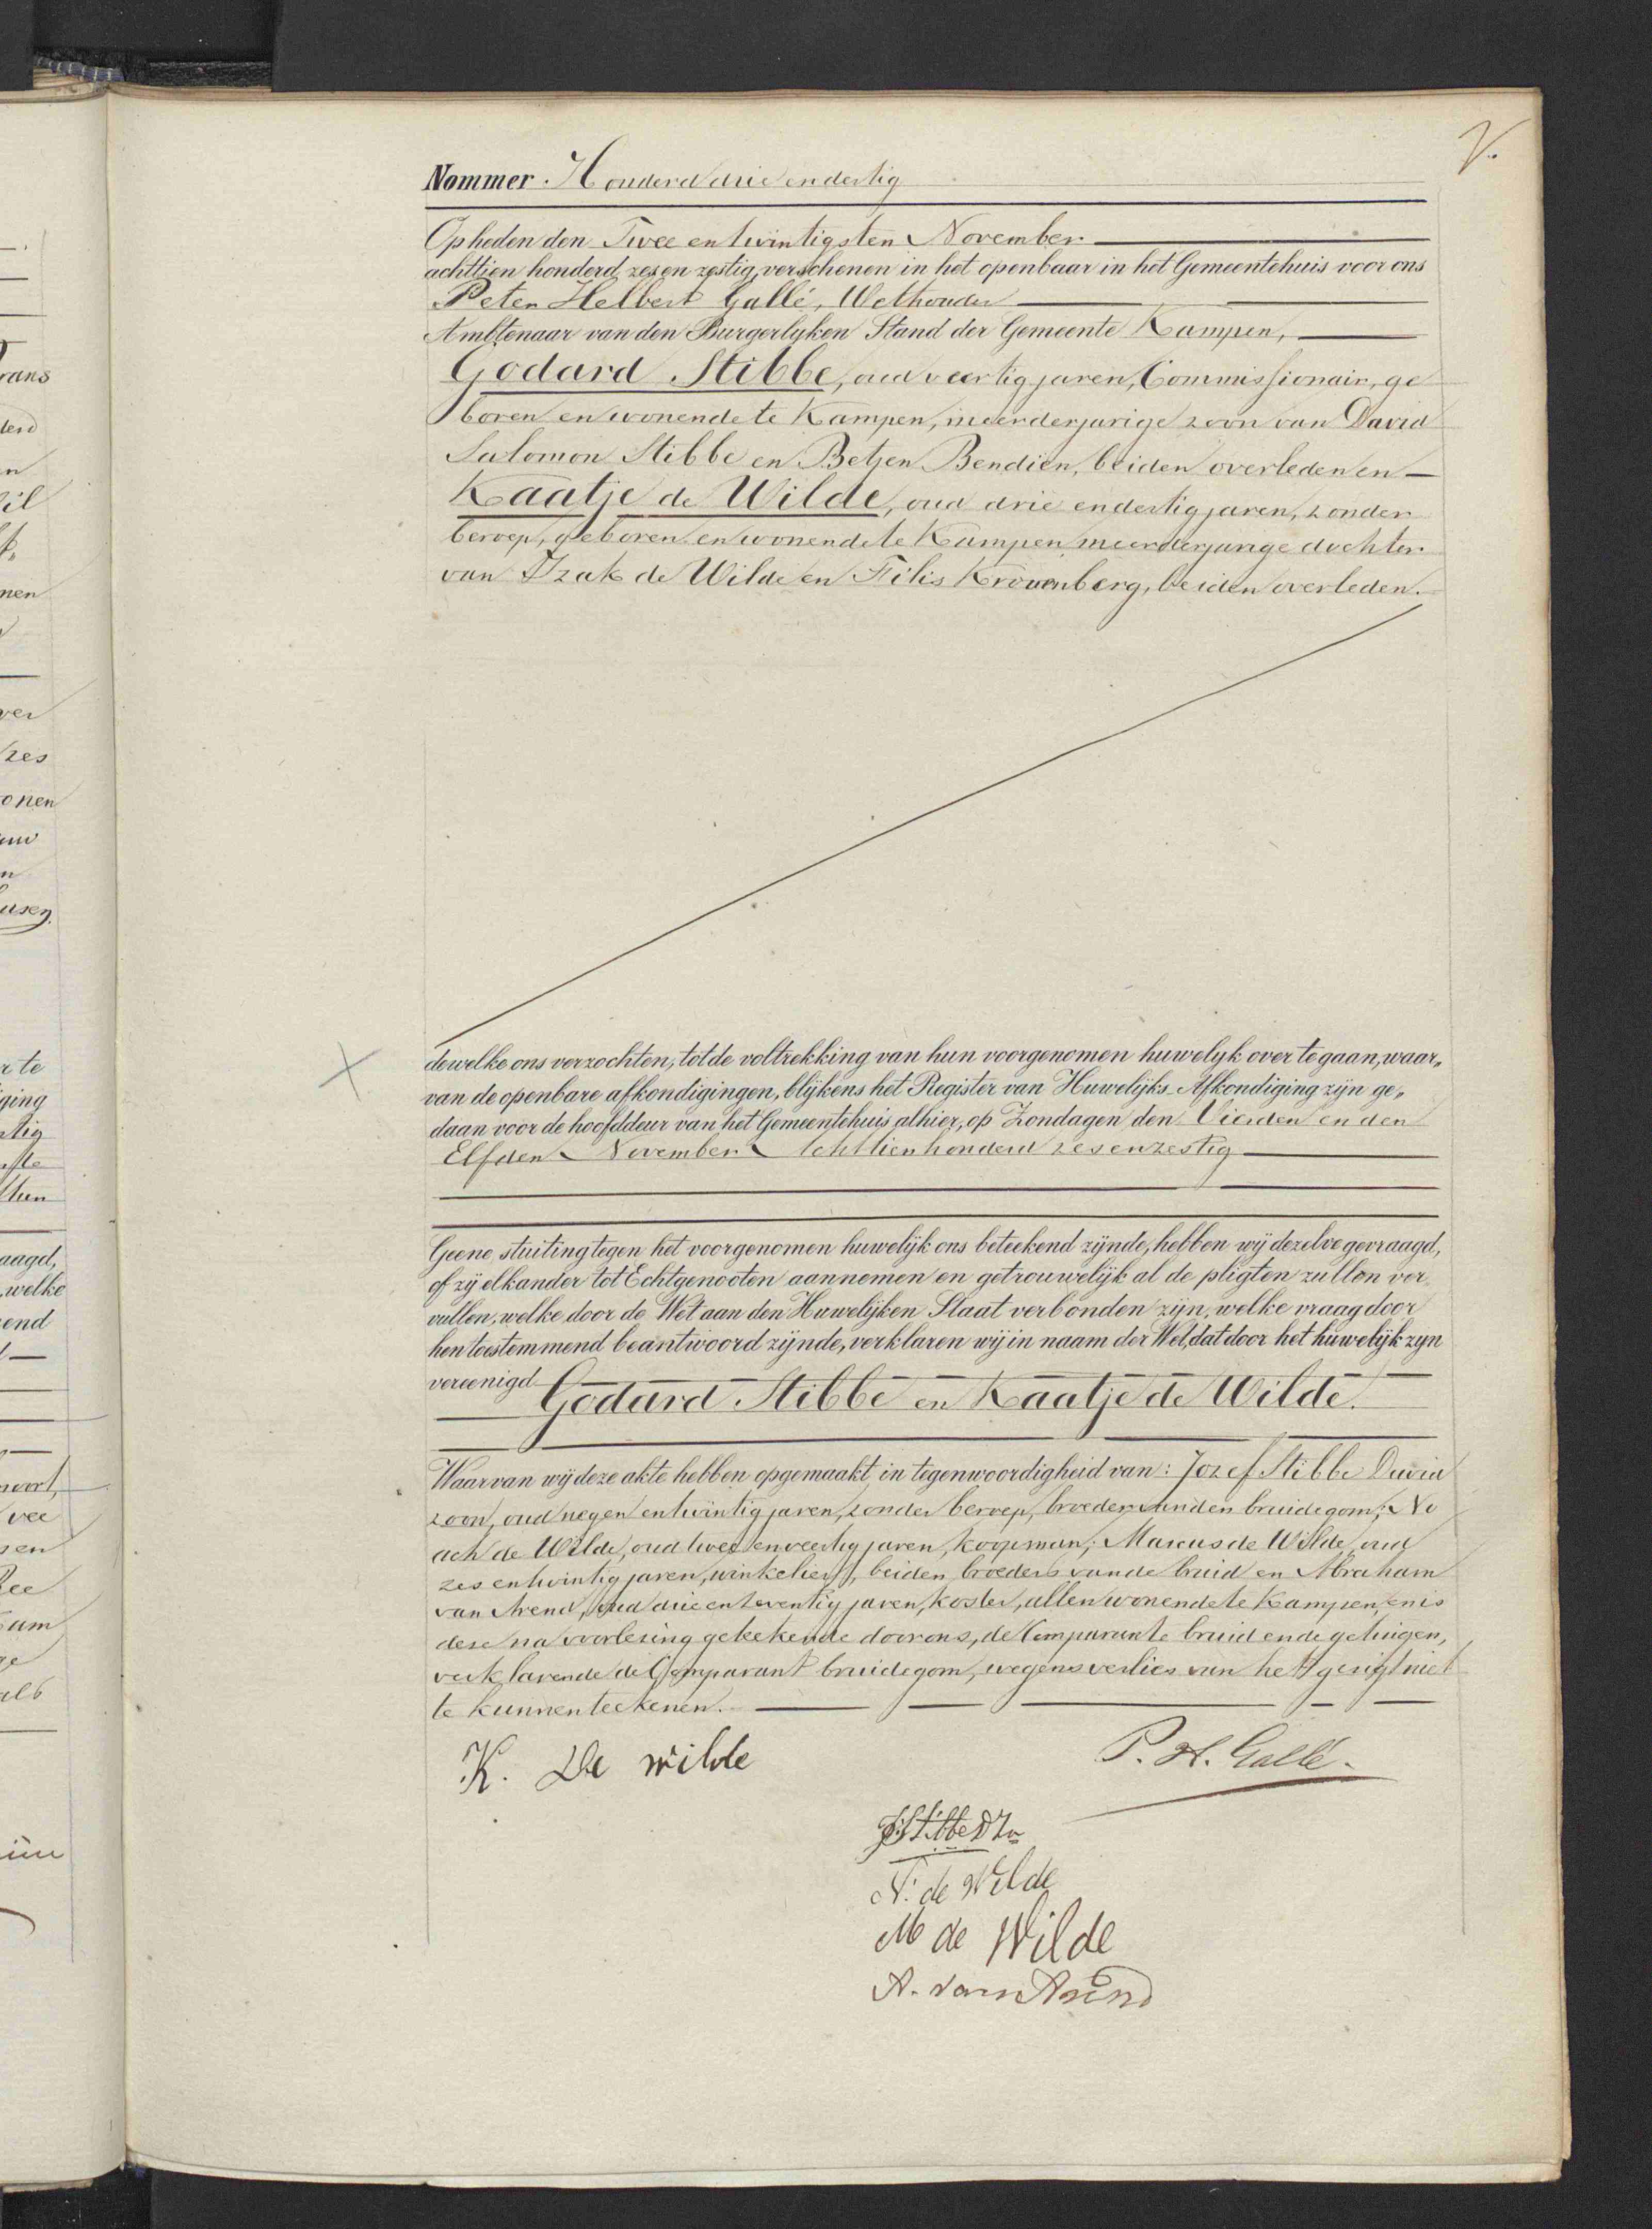 V.
Nommer. Honderd drie en dertig
Op heden den Twee en twintigsten November
achttien honderd zes en zestig, verschenen in het openbaar in het Gemeentehuis voor ons
Peter Helbert Gallé, Wethouder
Ambtenaar van den Burgerlyken Stand der Gemeente Kampen,
Godard Stibbe, oud veertig jaren, Commissionair, ge
boren en wonende te Kampen, meerderjarige zoon van David
Salomon Stibbe en Betjen Bendien, beiden overleden en
Kaatje de Wilde, oud drie en dertig jaren, zonder
beroep, geboren en wonende te Kampen meerderjarige dochter
van Izak de Wilde en Filis Krouenberg, beiden overleden.
dewelke ons verzochten, tot de voltrekking van hun voorgenomen huwelyk over te gaan, waar„
van de openbare afkondigingen, blijkens het Register van Huwelijks-Afkondiging zijn ge„
daan voor de hoofddeur van het Gemeentehuis alhier, op Zondagen den Vierden en den
Elfden November Achttienhonderd zesenzestig
Geene stuiting tegen het voorgenomen huwelijk ons beteekend zijnde, hebben wij dezelve gevraagd,
of zij elkander tot Echtgenooten aannemen en getrouwelijk al de pligten zullen ver
vullen, welke door de Wet aan den Huwelijken Staat verbonden zijn, welke vraag door
hen toestemmend beantwoord zijnde, verklaren wij in naam der Wet, dat door het huwelijk zijn
vereenigd Godard Stibbe en Kaatje de Wilde.
Waarvan wij deze akte hebben opgemaakt, in tegenwoordigheid van: Jozef Stibbe David
zoon, oud negen en twintig jaren, zonder beroep, broeder van den bruidegom; No
ach de Wilde, oud twee en veertig jaren, koopman; Marcus de Wilde, oud
zes en twintig jaren, winkelier, beiden broeders van de bruid en Abraham
van Arend, oud drie en zeventig jaren, koster, allen wonende te Kampen, en is
deze na voorlezing geteekende door ons, de Comparante bruid en de getuigen,
verklarende de Comparant bruidegom, wegens verlies van het gezigt niet
te kunnen teekenen.
K. De wilde
P. H. Gallé.
J Stibbe DZn
N. de Wilde
M de Wilde
A. van Arend